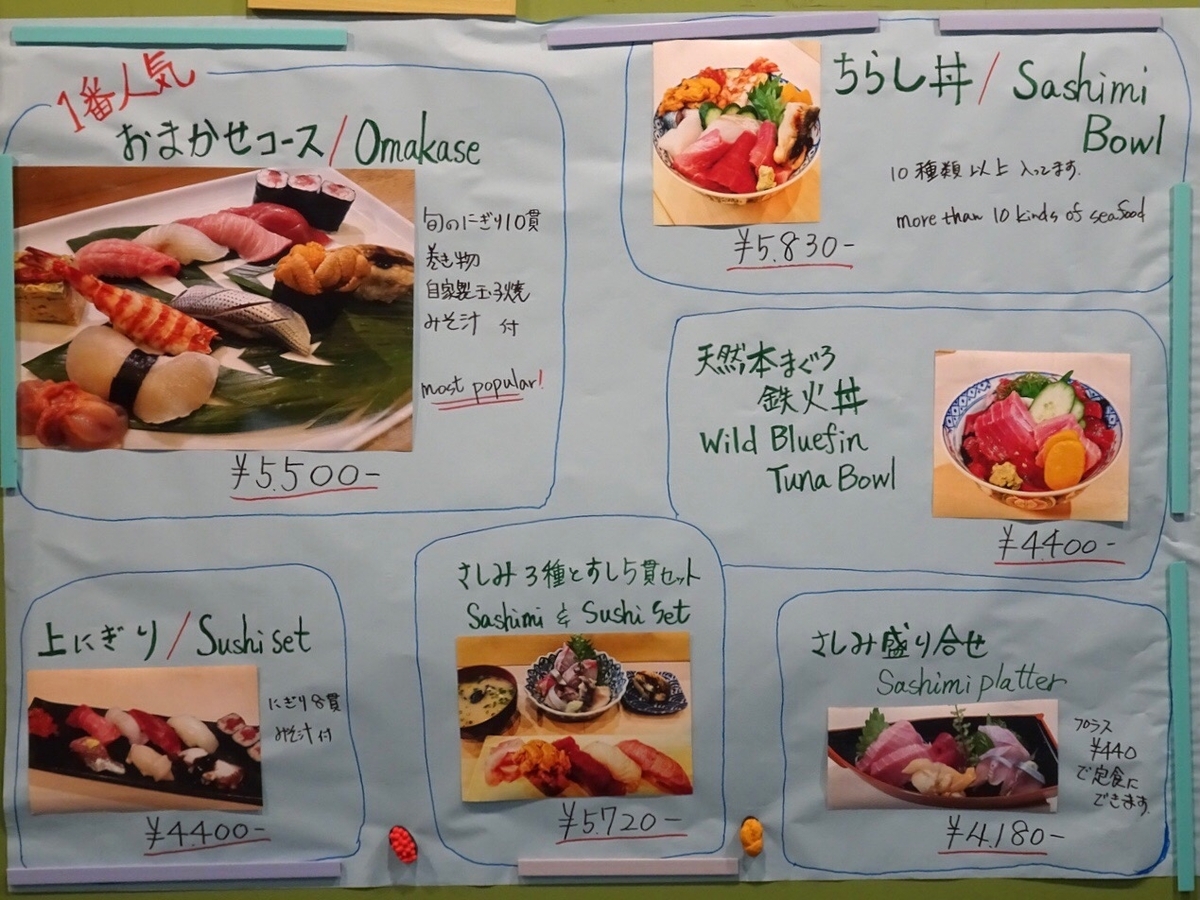 1番人気
おまかせコース/Omakase
旬のにぎり10貫
巻き物
自家製玉子焼
みそ汁 付
most popular!
¥5.500-
ちらし丼/Sashimi
Bowl
10種類以上入ってます。
more than 10 kinds of seafood
¥5.830-
天然本まぐろ
鉄火丼
Wild Bluefin
Tuna Bowl
¥4400-
上にぎり/Sushi set
にぎり8貫
みそ汁付
¥4.400-
さしみ3種とすし5貫セット
Sashimi & Sushi Set
¥5.720-
さしみ盛り合せ
Sashimi platter
プラス
¥440
で定食に
できます。
¥4.180-